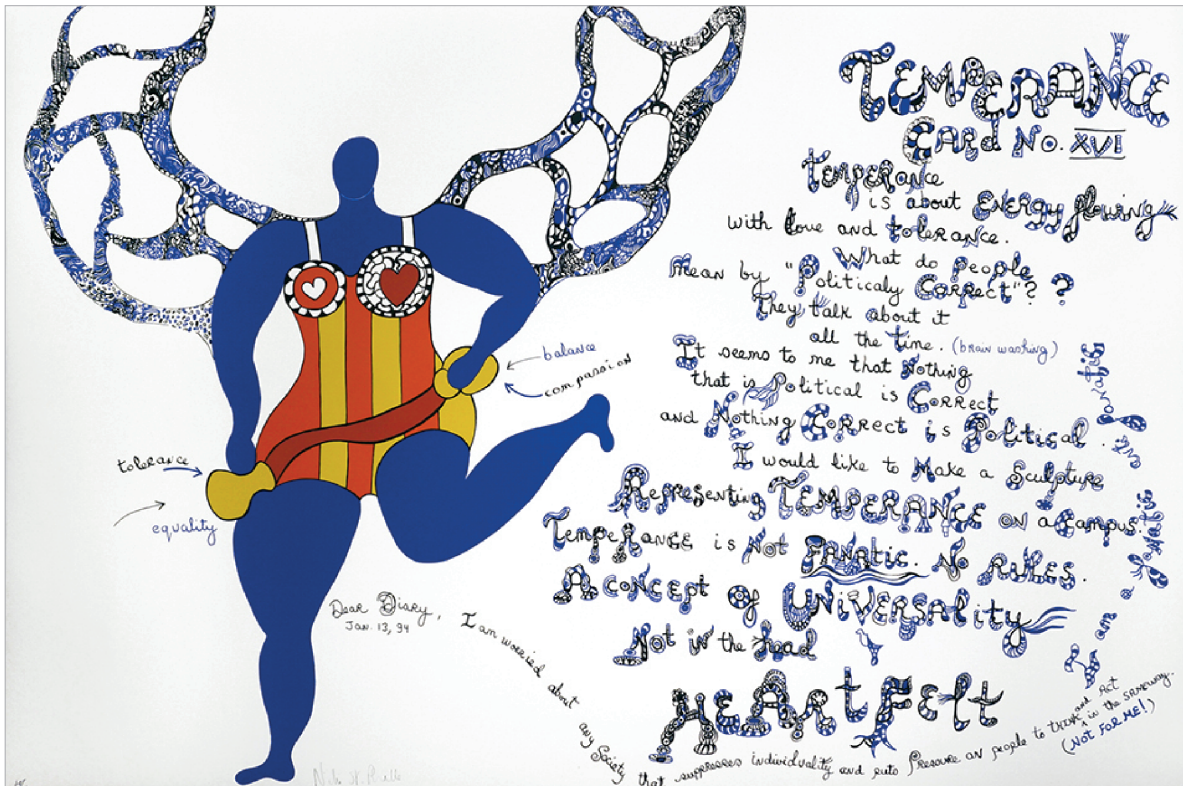 TEMPERANCE
CARd No. XVI
TEMPERANCE
is about ENERGY flowing
with love and tolerance.
What do people
mean by "Politicaly Correct"? ?
They talk about it
all the time. (brain washing)
It seems to me that Nothing
that is Political is Correct
and Nothing Correct is Political.
I would like to Make a Sculpture
Representing TEMPERANCE on a campus.
TempeRANCE is Not FANATIC. No RULES.
A CONCEPT of UNIVERSALITY
Not in the head
HEARt Felt
balance
compassion
tolerance
equality
Dear Diary,
Jan. 13, 94
I am worried about any Society that suppresses individuality and puts Pressure on people to think and act in the SAMEWAY.
(NOT FOR ME!)
I am a fanatic